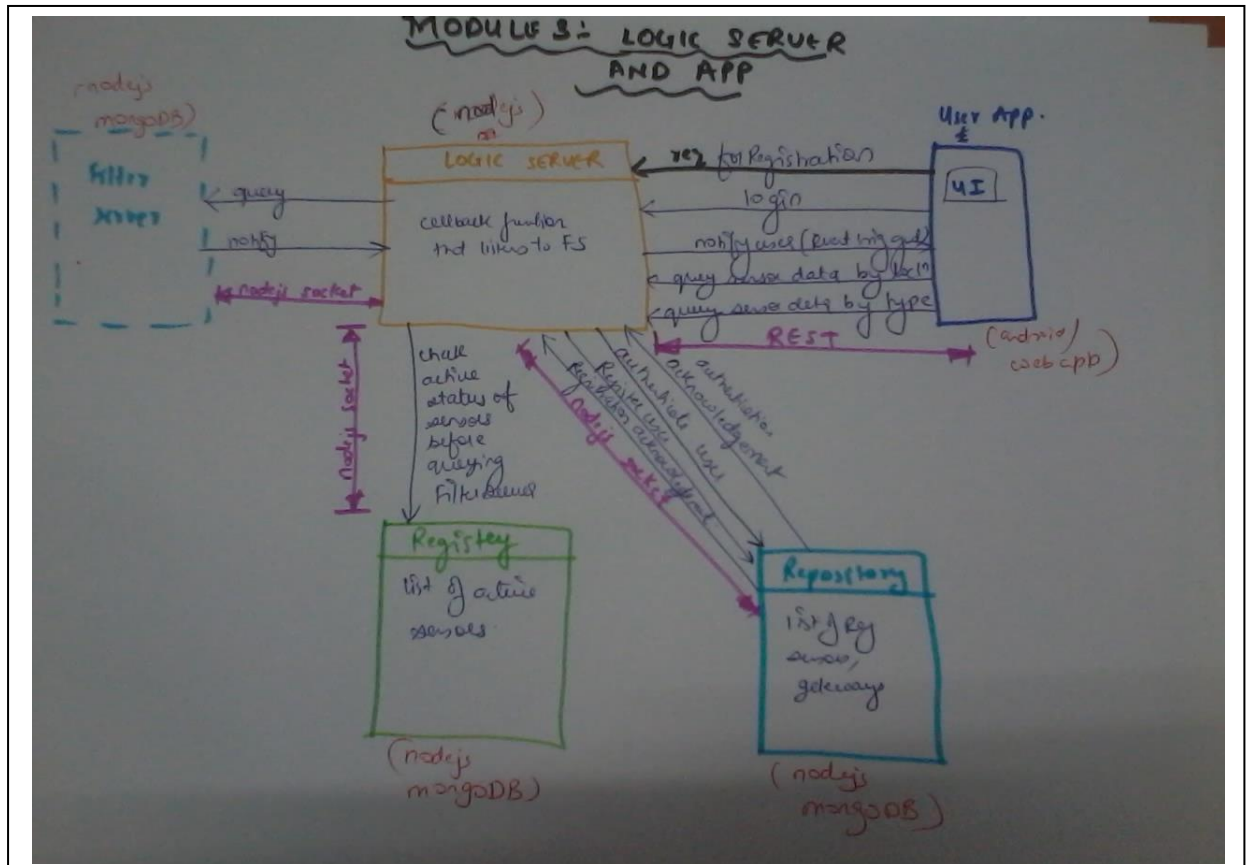 MODULE 3:- LOGIC SERVER
AND APP
(nodejs
mongoDB)
Filter
server
query
notify
nodejs socket
(nodejs)
LOGIC SERVER
callback function
that listens to FS
req for Registration
login
notify user (
query sensor data by locn
query sensor data by type
REST
User App.
UI
(android/
web app)
nodejs socket
check
active
status of
sensors
before
querying
Filter server
Registration acknowledgement
Register user
authenticate user
authentication
acknowledgement
nodejs socket
Registry
list of active
sensors.
(nodejs
mongoDB)
Repository
list of Reg
sensors,
gateways
(nodejs
mongoDB)